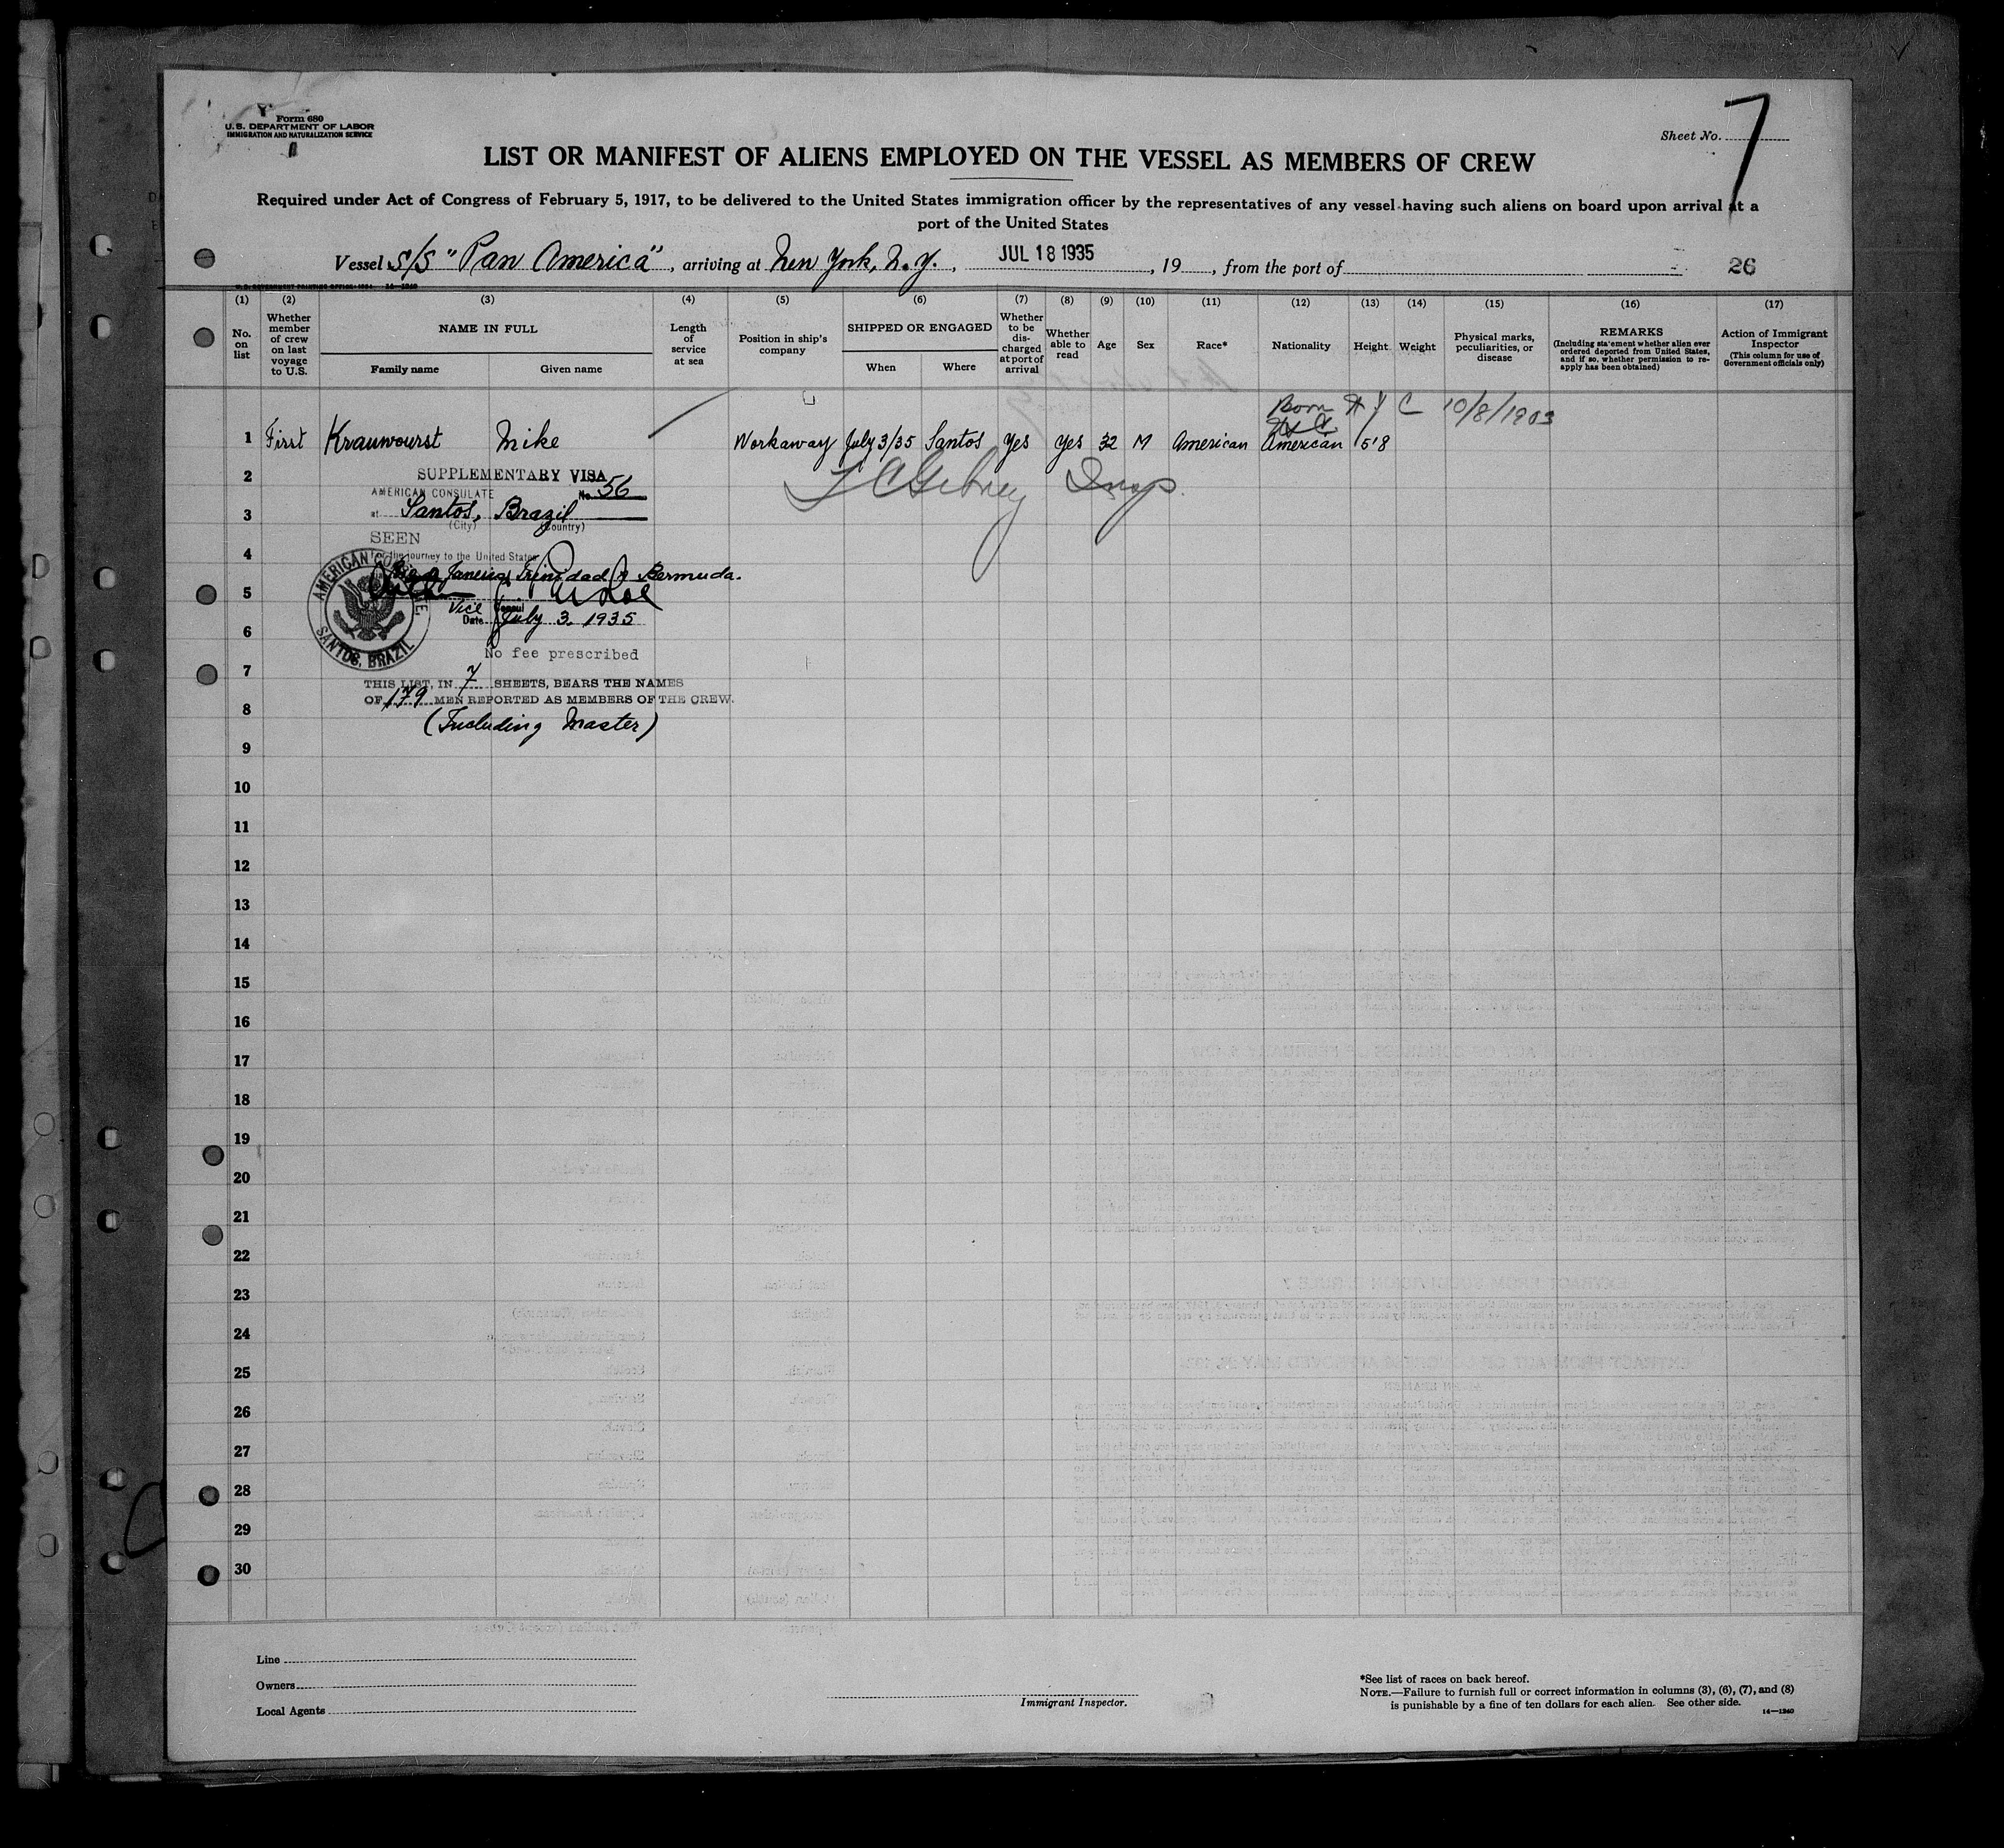 Form 680
U.S. DEPARTMENT OF LABOR
IMMIGRATION AND NATURALIZATION SERVICE
Sheet No. 7
LIST OR MANIFEST OF ALIENS EMPLOYED ON THE VESSEL AS MEMBERS OF CREW
Required under Act of Congress of February 5, 1917, to be delivered to the United States immigration officer by the representatives of any vessel having such aliens on board upon arrival at a
port of the United States
Vessel S/S "Pan America", arriving at New York, N.Y., JUL 18 1935, 19, from the port of 26
(1) (2) (3) (4) (5) (6) (7) (8) (9) (10) (11) (12) (13) (14) (15) (16) (17)
No. on list
Whether member of crew on last voyage to U.S.
NAME IN FULL
Family name
Given name
Length of service at sea
Position in ship's company
SHIPPED OR ENGAGED
When
Where
Whether to be discharged at port of arrival
Whether able to read
Age
Sex
Race*
Nationality
Height
Weight
Physical marks, peculiarities, or disease
REMARKS
(Including statement whether alien ever ordered deported from United States, and if so, whether permission to reapply has been obtained)
Action of Immigrant Inspector
(This column for use of Government officials only)
Born N Y C 10/8/1903
1 First Krauwourst Mike Workaway July 3/35 Santos Yes Yes 32 M American American 5'8
2
SUPPLEMENTARY VISA
AMERICAN CONSULATE No. 56
3
at Santos, Brazil
(City) (Country)
SEEN
4
for the journey to the United States
Janeiro, Trinidad & Bermuda.
5
Vice Consul
Date July 3, 1935
AMERICAN CONSULATE
SANTOS, BRAZIL
6
No fee prescribed
7
THIS LIST, IN 7 SHEETS, BEARS THE NAMES
OF 179 MEN REPORTED AS MEMBERS OF THE CREW.
8
(Including Master)
9
10
11
12
13
14
15
16
17
18
19
20
21
22
23
24
25
26
27
28
29
30
Line
Owners
Local Agents
Immigrant Inspector.
*See list of races on back hereof.
NOTE.—Failure to furnish full or correct information in columns (3), (6), (7), and (8)
is punishable by a fine of ten dollars for each alien. See other side.
14—1240